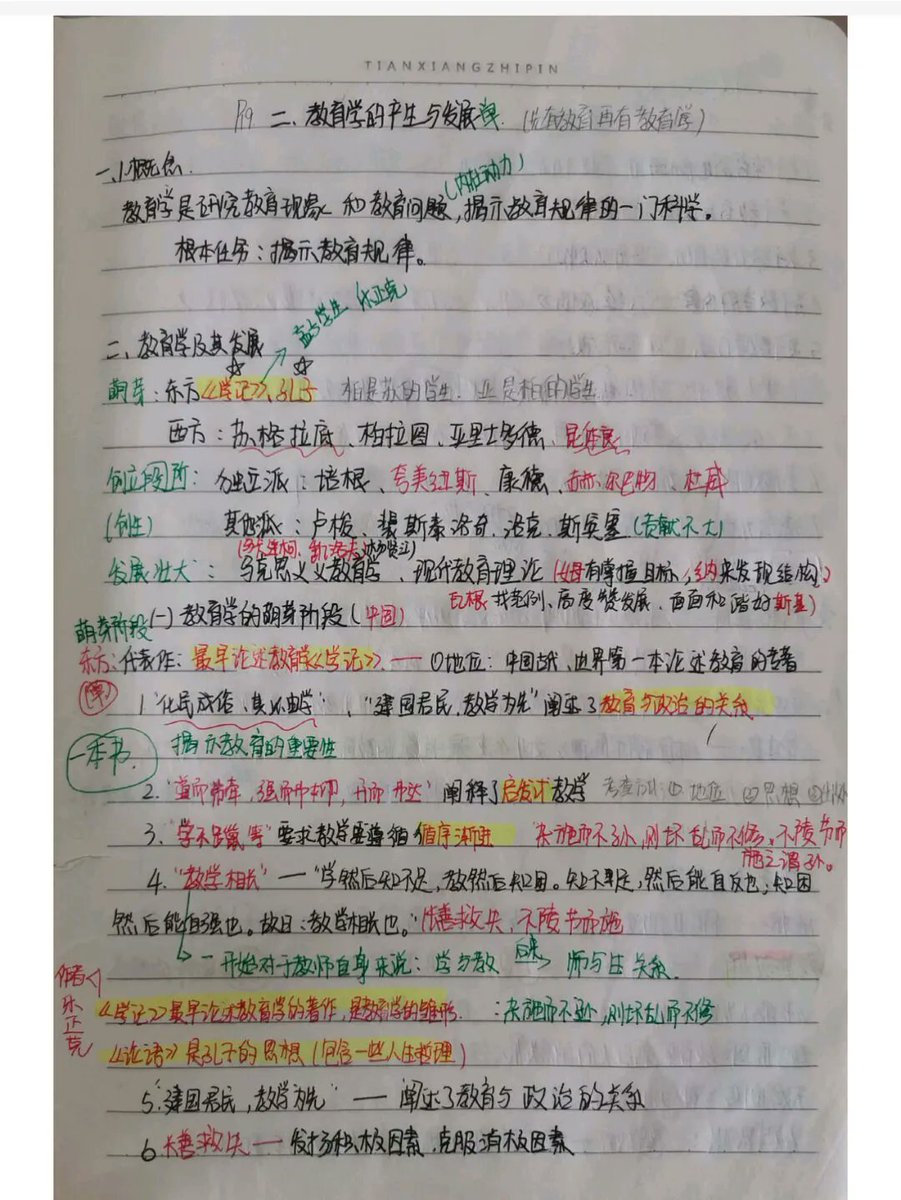 TIANXIANGZHIPIN
P19 二、教育学的产生与发展 (先有教育再有教育学)
一、小概念.
(内在动力)
教育学是研究教育现象和教育问题,揭示教育规律的一门科学。
根本任务:揭示教育规律。
孟子学生 乐正克
二、教育学及其发展
萌芽:东方《学记》、孔子 柏是苏的学生. 亚是柏的学生
西方:苏格拉底、柏拉图、亚里士多德、昆体良
创立阶段: 独立派:培根、夸美纽斯、康德、赫尔巴特、杜威
其他派:卢梭、裴斯泰洛奇、洛克、斯宾塞(贡献不大)
发展壮大: 马克思义义教育学、现代教育理论
东方:代表作:最早论述教育学《学记》.—①地位:中国古代、世界第一本论述教育的专著
萌芽阶段(一)教育学的萌芽阶段(中国)
1."化民成俗,其必由学"、"建国君民,教学为先"阐述了教育与政治的关系
一本书. 揭示教育的重要性
2. 阐释了启发式教学 ①地位 ②思想
3."学不躐等"要求教学要遵循循序渐进 杂施而不孙,则坏乱而不修。不陵节而
施之谓孙。
4."教学相长"—"学然后知不足,教然后知困。知不足,然后能自反也;知困
然后能自强也。故曰:教学相长也。"长善救失,不陵节而施
一开始对于教师自身来说:学与教 后来 师与生关系.
作者 乐正克
《学记》最早论述教育学的著作,是教育学的雏形. :杂施而不孙,则坏乱而不修
《论语》是孔子的思想(包含一些人生哲理)
5."建国君民,教学为先"——阐述了教育与政治的关系
6.长善救失——发扬积极因素,克服消极因素